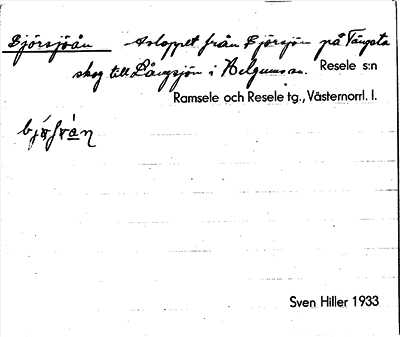 Björsjöån Avloppet från Björsjön på Tångsta
skog till Långsjön i Helgumsån. Resele s:n
Ramsele och Resele tg., Västernorrl. l.
Sven Hiller 1933